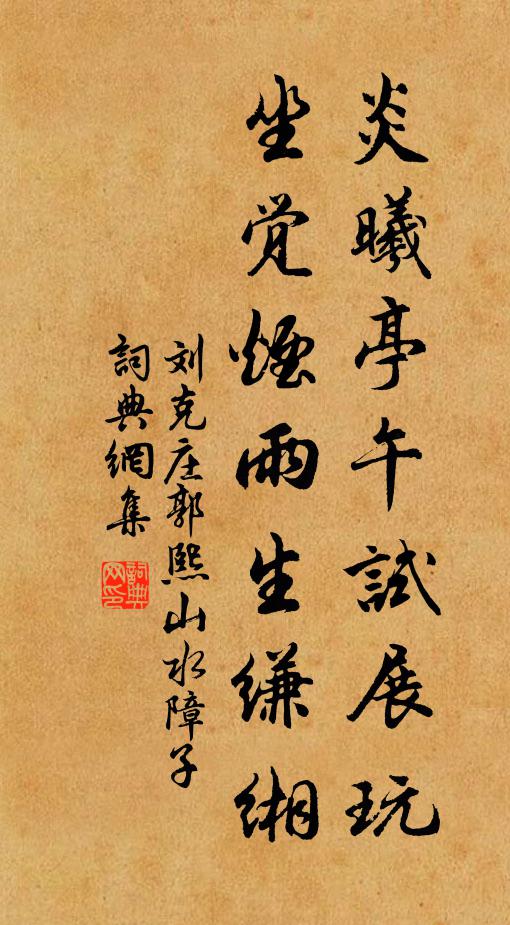 炎曦亭午試展玩
坐觉煙雨生縑緗
刘克庄郭熙山水障子
詞典網集
詞典網印